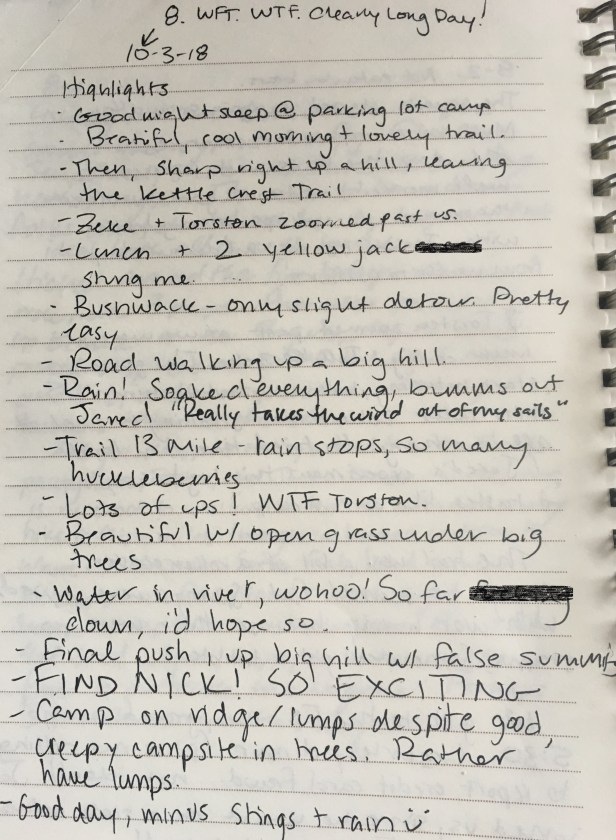 8. WFT. WTF. Clearly Long Day!
10-3-18
Highlights
- Good night sleep @ parking lot camp
- Beatiful, cool morning + lovely trail.
- Then, sharp right up a hill, leaving
the Kettle Crest Trail
- Zeke + Torston zoomed past us.
- Lunch + 2 yellow jack
stung me.
- Bushwack - only slight detour. Pretty
easy
- Road walking up a big hill.
- Rain! Soaked everything, bumms out
Jared "Really takes the wind out of my sails"
- Trail 13 mile - rain stops, so many
huckleberries
- Lots of ups! WTF Torston.
- Beautiful w/ open grass under big
trees
- Water in river, wohoo! So far
down, i'd hope so.
- Final push, up big hill w/ false summit
- FIND NICK! SO EXCITING
- Camp on ridge/lumps despite good,
creepy campsite in trees. Rather
have lumps.
- Good day, minus stings + rain :)